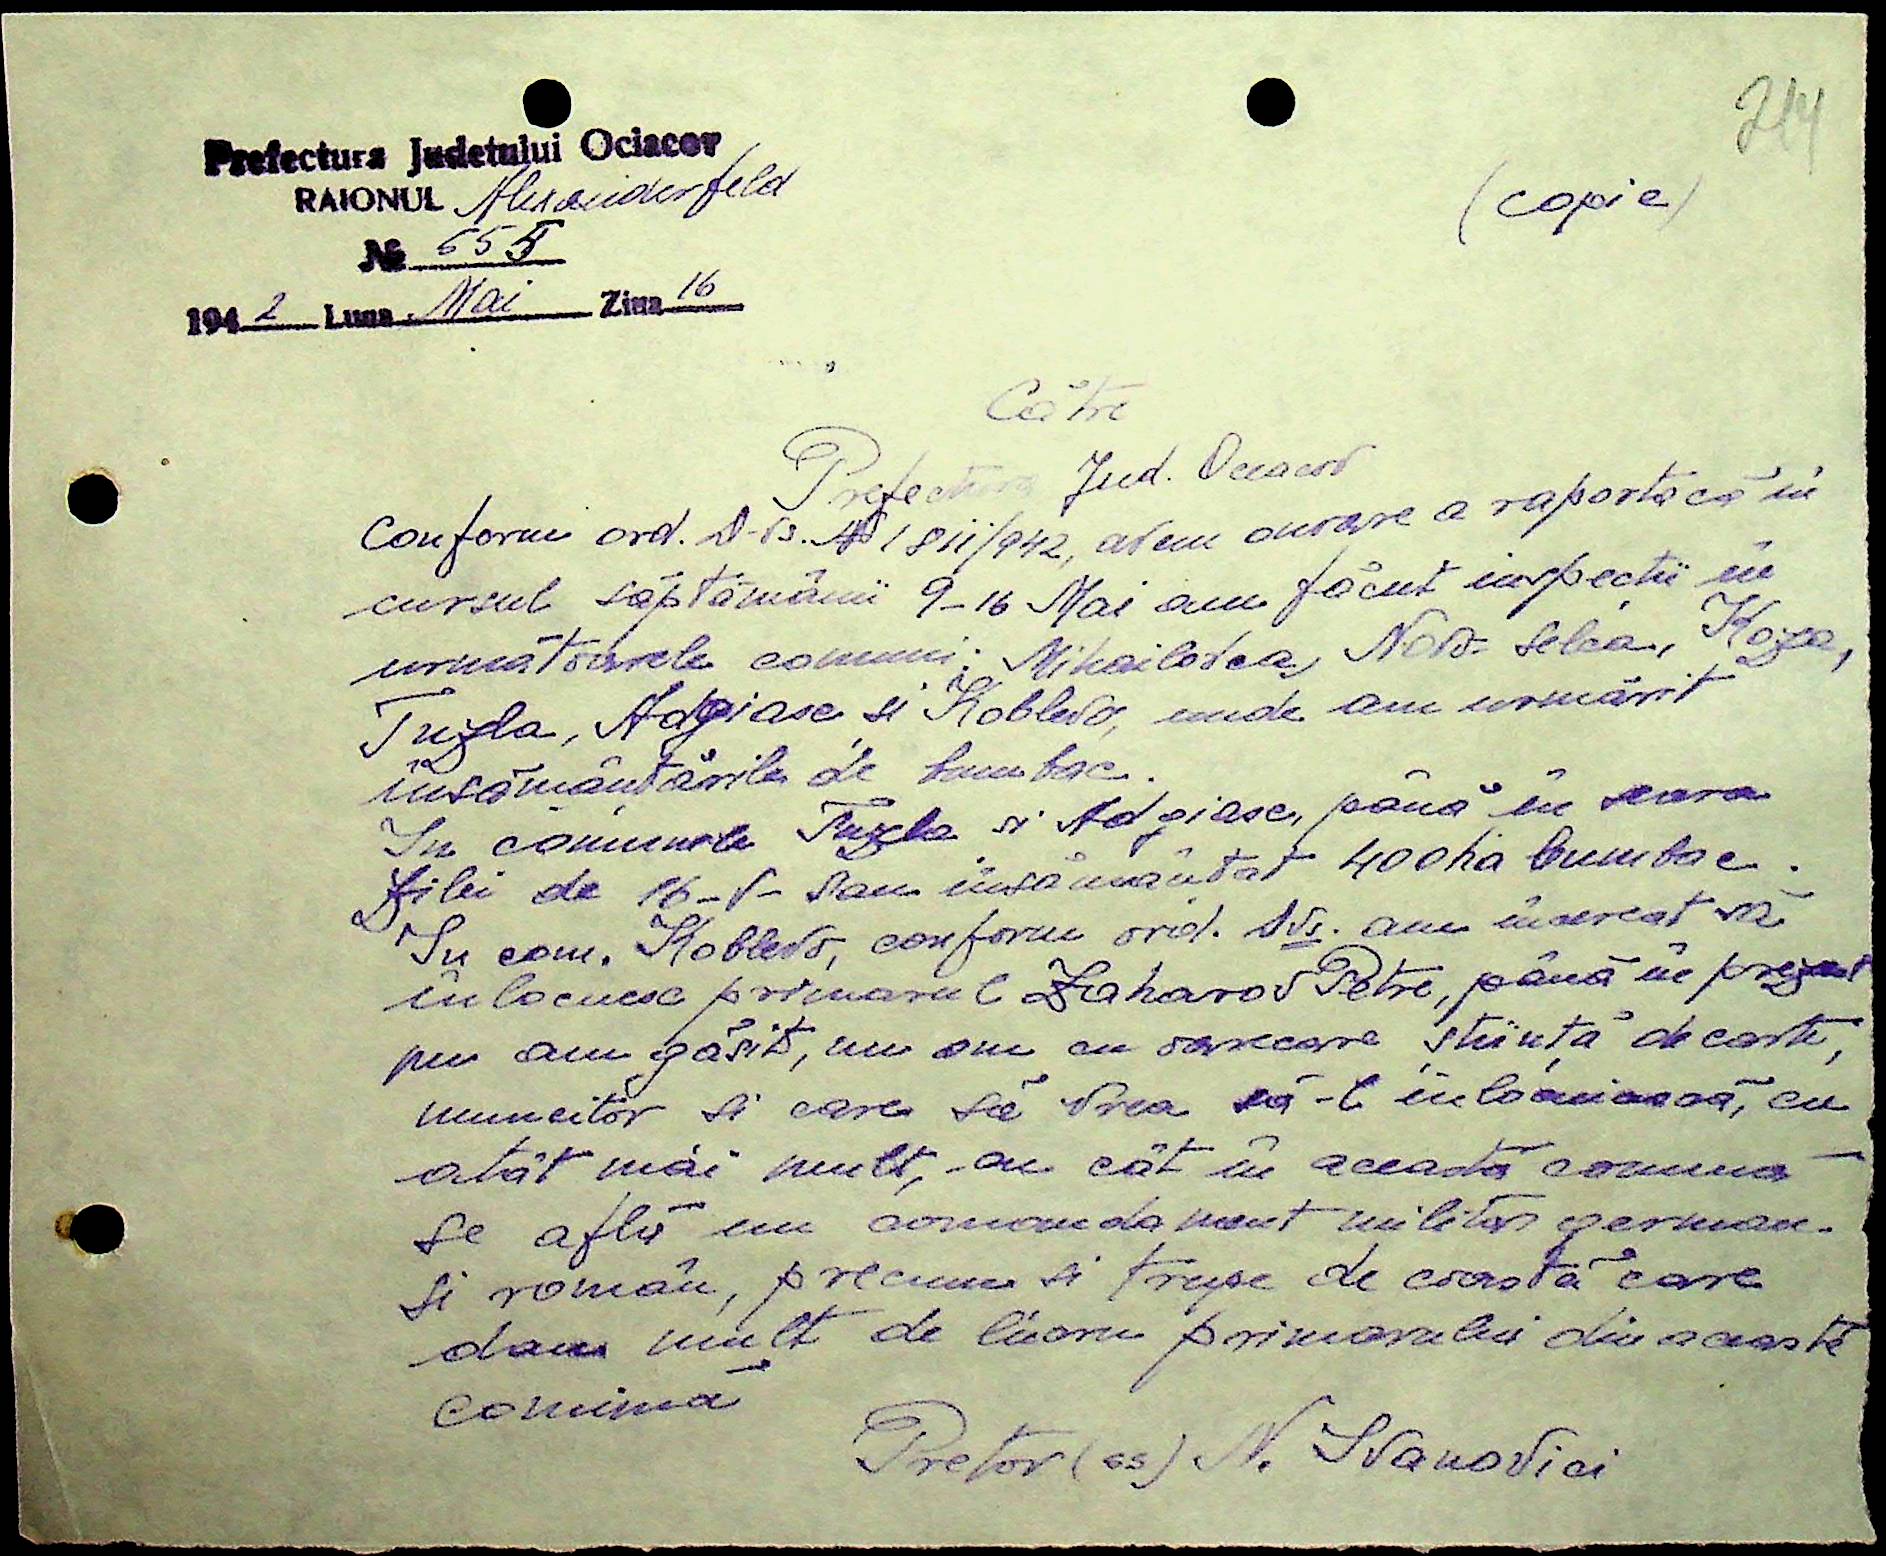 214
(copie)
Prefectura Judetului Ociacov
RAIONUL Alexanderfeld
№ 655
1942 Luna Mai Ziua 16
Către
Prefectura Jud. Ociacov
Conform ord. D-vs. № 1811/942, avem onoare a raporta că în
cursul săptămânii 9-16 Mai am făcut inspecții în
următoarele comuni: Mihailovca, Novo-Selca, Koza,
Tuzla, Adgiasc, si Koblevo, unde am urmărit
însămânțările de bumbac.
In comunele Tuzla si Adgiasc, până în seara
zilei de 16-V- sau însămânțat 400 ha bumbac.
In com. Koblevo, conform ord. Dvs. am încercat să
înlocuesc primarul Zaharov Petre, până în prezent
nu am găsit, un om cu oarecare știință de carte,
muncitor si care să vrea să-l înlocuiască, cu
atât mai mult, cu cât în această comună
se află un comandament militar german
si român, precum si trupe de coastă care
dau mult de lucru primarului din această
comună
Pretor (ss) N. Ivanovici